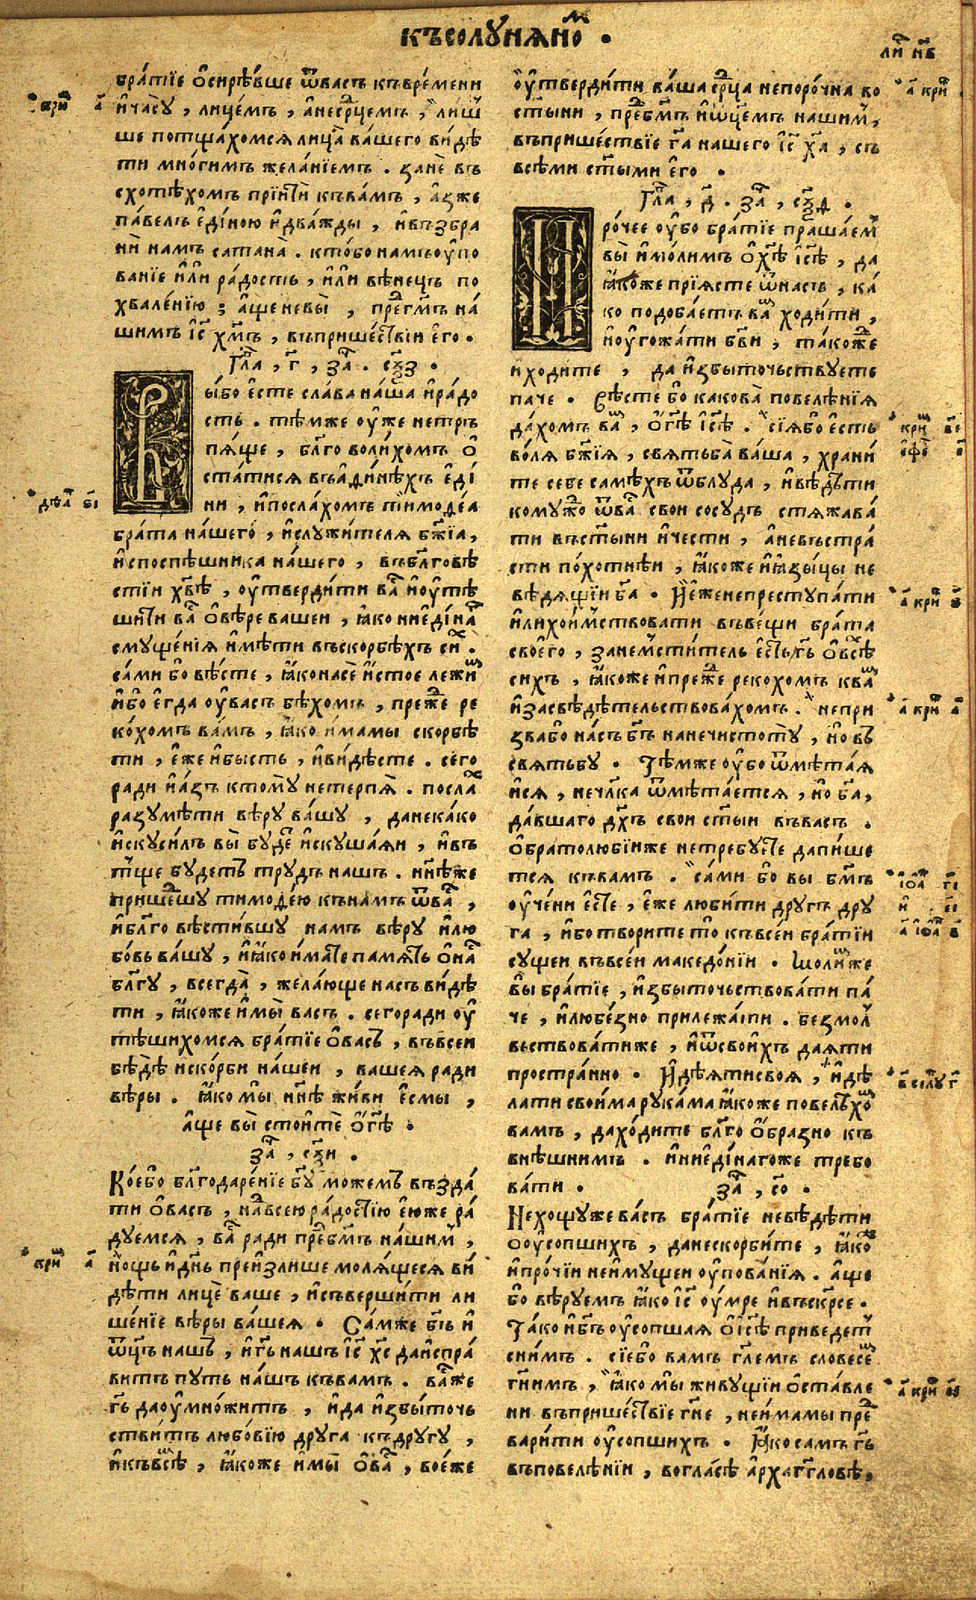 къ солꙋнѧномъ ·
ли н҃в
братїе ѡсирѣвше ѿвасъ къвремени
ичасꙋ , лицемъ , анесрⷣцемъ , лиш
ше потщахомсѧ лица вашего видѣ
ти многимъ желанїемъ . зане въ
схотѣхомъ прїити къвамъ , азже
павелъ единою идважды , ивъзбра
ни намъ сатана . ктобо намъ оупо
ванїе или радость , или вѣнецъ по
хваленїю ; аще не вы , прегⷣмъ на
шимъ іс҃ хм҃ъ , въпришествїи его .
Гла , г҃ , за . сѯ҃з .
Выбо есте слава наша ирадо
сть . тѣмже оуже нетръ
пѧще , благоволихомъ о
статисѧ въаѳинѣхъ еді
ни , ипослахомъ тимоѳеа
брата нашего , ислужителѧ бж҃їа ,
испоспѣшника нашего , въблговѣ
стїи хв҃ѣ , оутвердити васъ иоутѣ
шити васъ овѣре вашеи , ꙗко ниединъ
смꙋщенїѧ имѣти въскорбѣхъ сихъ .
сами бо вѣсте , ꙗконасе истое лежимъ
ибо егда оувасъ бѣхомъ , преже ре
кохомъ вамъ , ꙗко имамы скорбѣ
ти , еже ибысть , ивидѣсте . сего
ради иазъ ктомꙋ нетерпѧ . послахъ
разꙋмѣти вѣрꙋ вашꙋ , данекако
искꙋсилъ вы бꙋде искꙋшаѧи , ивъ
тще бꙋдетъ трꙋдъ нашъ . нынѣже
пришешꙋ тимоѳею кънамъ ѿвасъ ,
иблаго вѣстившꙋ намъ вѣрꙋ илю
бовь вашꙋ , иꙗко имате память онасъ
благꙋ , всегда , желающе насъ видѣ
ти , ꙗкоже имы васъ . сегоради оу
тѣшихомсѧ братїе овасъ , въвсеи
бѣдѣ искорби нашеи , вашеѧ ради
вѣры . ꙗко мы нынѣ живи есмы ,
аще вы стоите огⷭ҇ѣ .
за , сѯ҃и .
Коебо благодаренїе бг҃ꙋ можемъ въезда
ти овасъ , навсею радостїю еюже ра
дꙋемсѧ , васъ ради пребг҃мъ нашимъ ,
нощь идн҃ь преизлише молѧщесѧ ви
дѣти лице ваше , исъвершити ли
шенїе вѣры вашеѧ . Самже бг҃ъ и
ѿцъ нашъ , игь҃ нашъ іс҃ хс҃ даиспра
витъ пꙋть нашъ къвамъ . васже
гь҃ даоумножитъ , ида избыточь
ствитъ любовїю дрꙋга къдрꙋгꙋ ,
икъвсѣмъ , ꙗкоже имы овасъ , воеже
оутвердити ваша срⷣца непорочна во
ст҃ыни , пребг҃мъ иѿцемъ нашимъ ,
въпришествїе га҃ нашего іс҃ ха҃ , съ
всѣми ст҃ыми его .
Гла , д҃ . за , сѯ҃д .
Прочее оубо братїе прашаемъ
вы имолимъ охѣ҃ іс҃ѣ , да
ꙗкоже прїѧсте ѿнасъ , ка
ко подобаетъ вамъ ходити ,
иоугожати бг҃ви , такоже
иходите , да избыточьствꙋете
паче . вѣсте бо какова повелѣнїѧ
дахомъ вамъ , огѣ҃ іс҃ѣ . сїѧбо есть
волѧ бж҃їѧ , свѧтьба ваша , храни
те себе самѣхъ ѿблꙋда , ивѣдѣти
комꙋжо ѿвасъ свои сосꙋдъ стѧжава
ти въст҃ыни ичести , аневъстра
сти похотнѣи , ꙗкоже иꙗзыцы не
вѣдѧщїи ба҃ . Иеженепрестꙋпати
илихоимствовати въвещи брата
своего , занемститель естьгь҃ овсѣ
сихъ , ꙗкоже ипреже рекохомъ квамъ
изасвѣдѣтельствовахомъ . непри
звабо насъ бг҃ъ нанечистотꙋ , но въ
свѧтьбꙋ . Тѣмже оубо ѿметаѧ
исѧ , нечл҃ка ѿметаетсѧ , но ба҃ ,
давшаго дх҃ъ свои ст҃ыи въвасъ .
Обратолюбїиже нетребꙋете дапише
тсѧ къвамъ . сами бо вы бг҃мъ
оучени есте , еже любити дрꙋгъ дрꙋ
га , ибо творите то къвсеи братїи
сꙋщеи въвсеи македонїи . молиже
вы братїе , избыточьствовати па
че , илюбезно прилежати . безмол
вьствоватиже , иѿсвоихъ даѧти
пространно . Идѣѧтисвоѧ , идѣ
лати своима рꙋкама ꙗкоже повелѣхомъ
вамъ , даходите благо образно къ
внѣшнимъ . иниединагоже требо
вати . за , со҃ .
Нехощꙋже васъ братїе невѣдѣти
ооусопшихъ , данескорбите , ꙗкоже
ипрочїи неимꙋщеи оупованїѧ . аще
бо вѣрꙋемъ ꙗко іс҃ оумре ивъскрсе .
Тако ибг҃ъ оусопшаѧ оіс҃ѣ приведетъ
снимъ . сїебо вамъ гл҃емъ словесемъ
гн҃имъ , ꙗко мы живꙋщїи оставле
ни въпришествїе гн҃е , неимамы пред
варити оусопшихъ . Ꙗко самъ гь҃
въповелѣнїи , вогласѣ архагг҃ловѣ ,